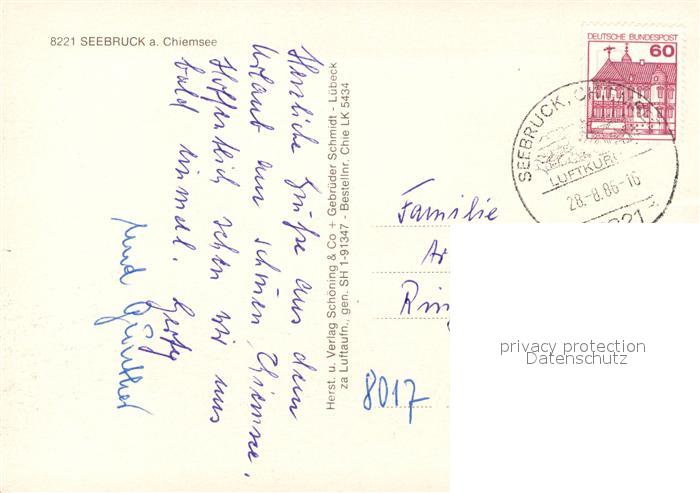 8221 SEEBRUCK a. Chiemsee
Herzliche Grüße aus dem
Urlaub am schönen Chiemsee.
Hoffentlich sehen wir uns
bald einmal. Gerty
und Günther
Herst. u. Verlag Schöning & Co + Gebrüder Schmidt - Lübeck
za Luftaufn., gen. SH 1-91347 - Bestellnr. Chie LK 5434
DEUTSCHE BUNDESPOST
60
SEEBRUCK, C
LUFTKUR
28.-8.86-16
8221
Familie
Ar
Rin
8017
privacy protection
Datenschutz